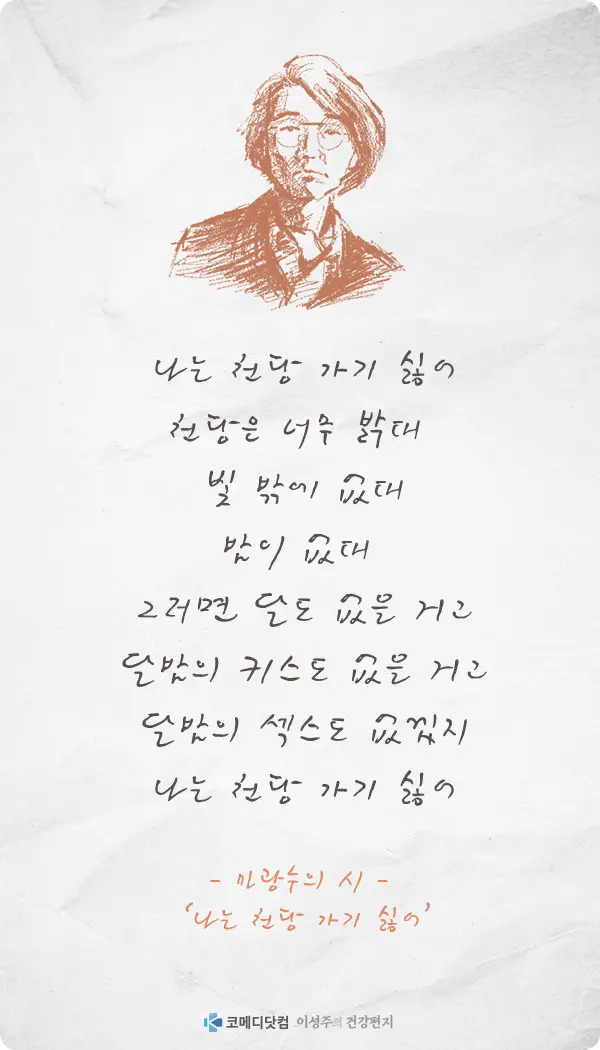 나는 천당 가기 싫어
천당은 너무 밝대
빛 밖에 없대
밤이 없대
그러면 달도 없을 거고
달밤의 키스도 없을 거고
달밤의 섹스도 없겠지
나는 천당 가기 싫어
- 마광수의 시 -
‘나는 천당 가기 싫어’
코메디닷컴 이성주의 건강편지